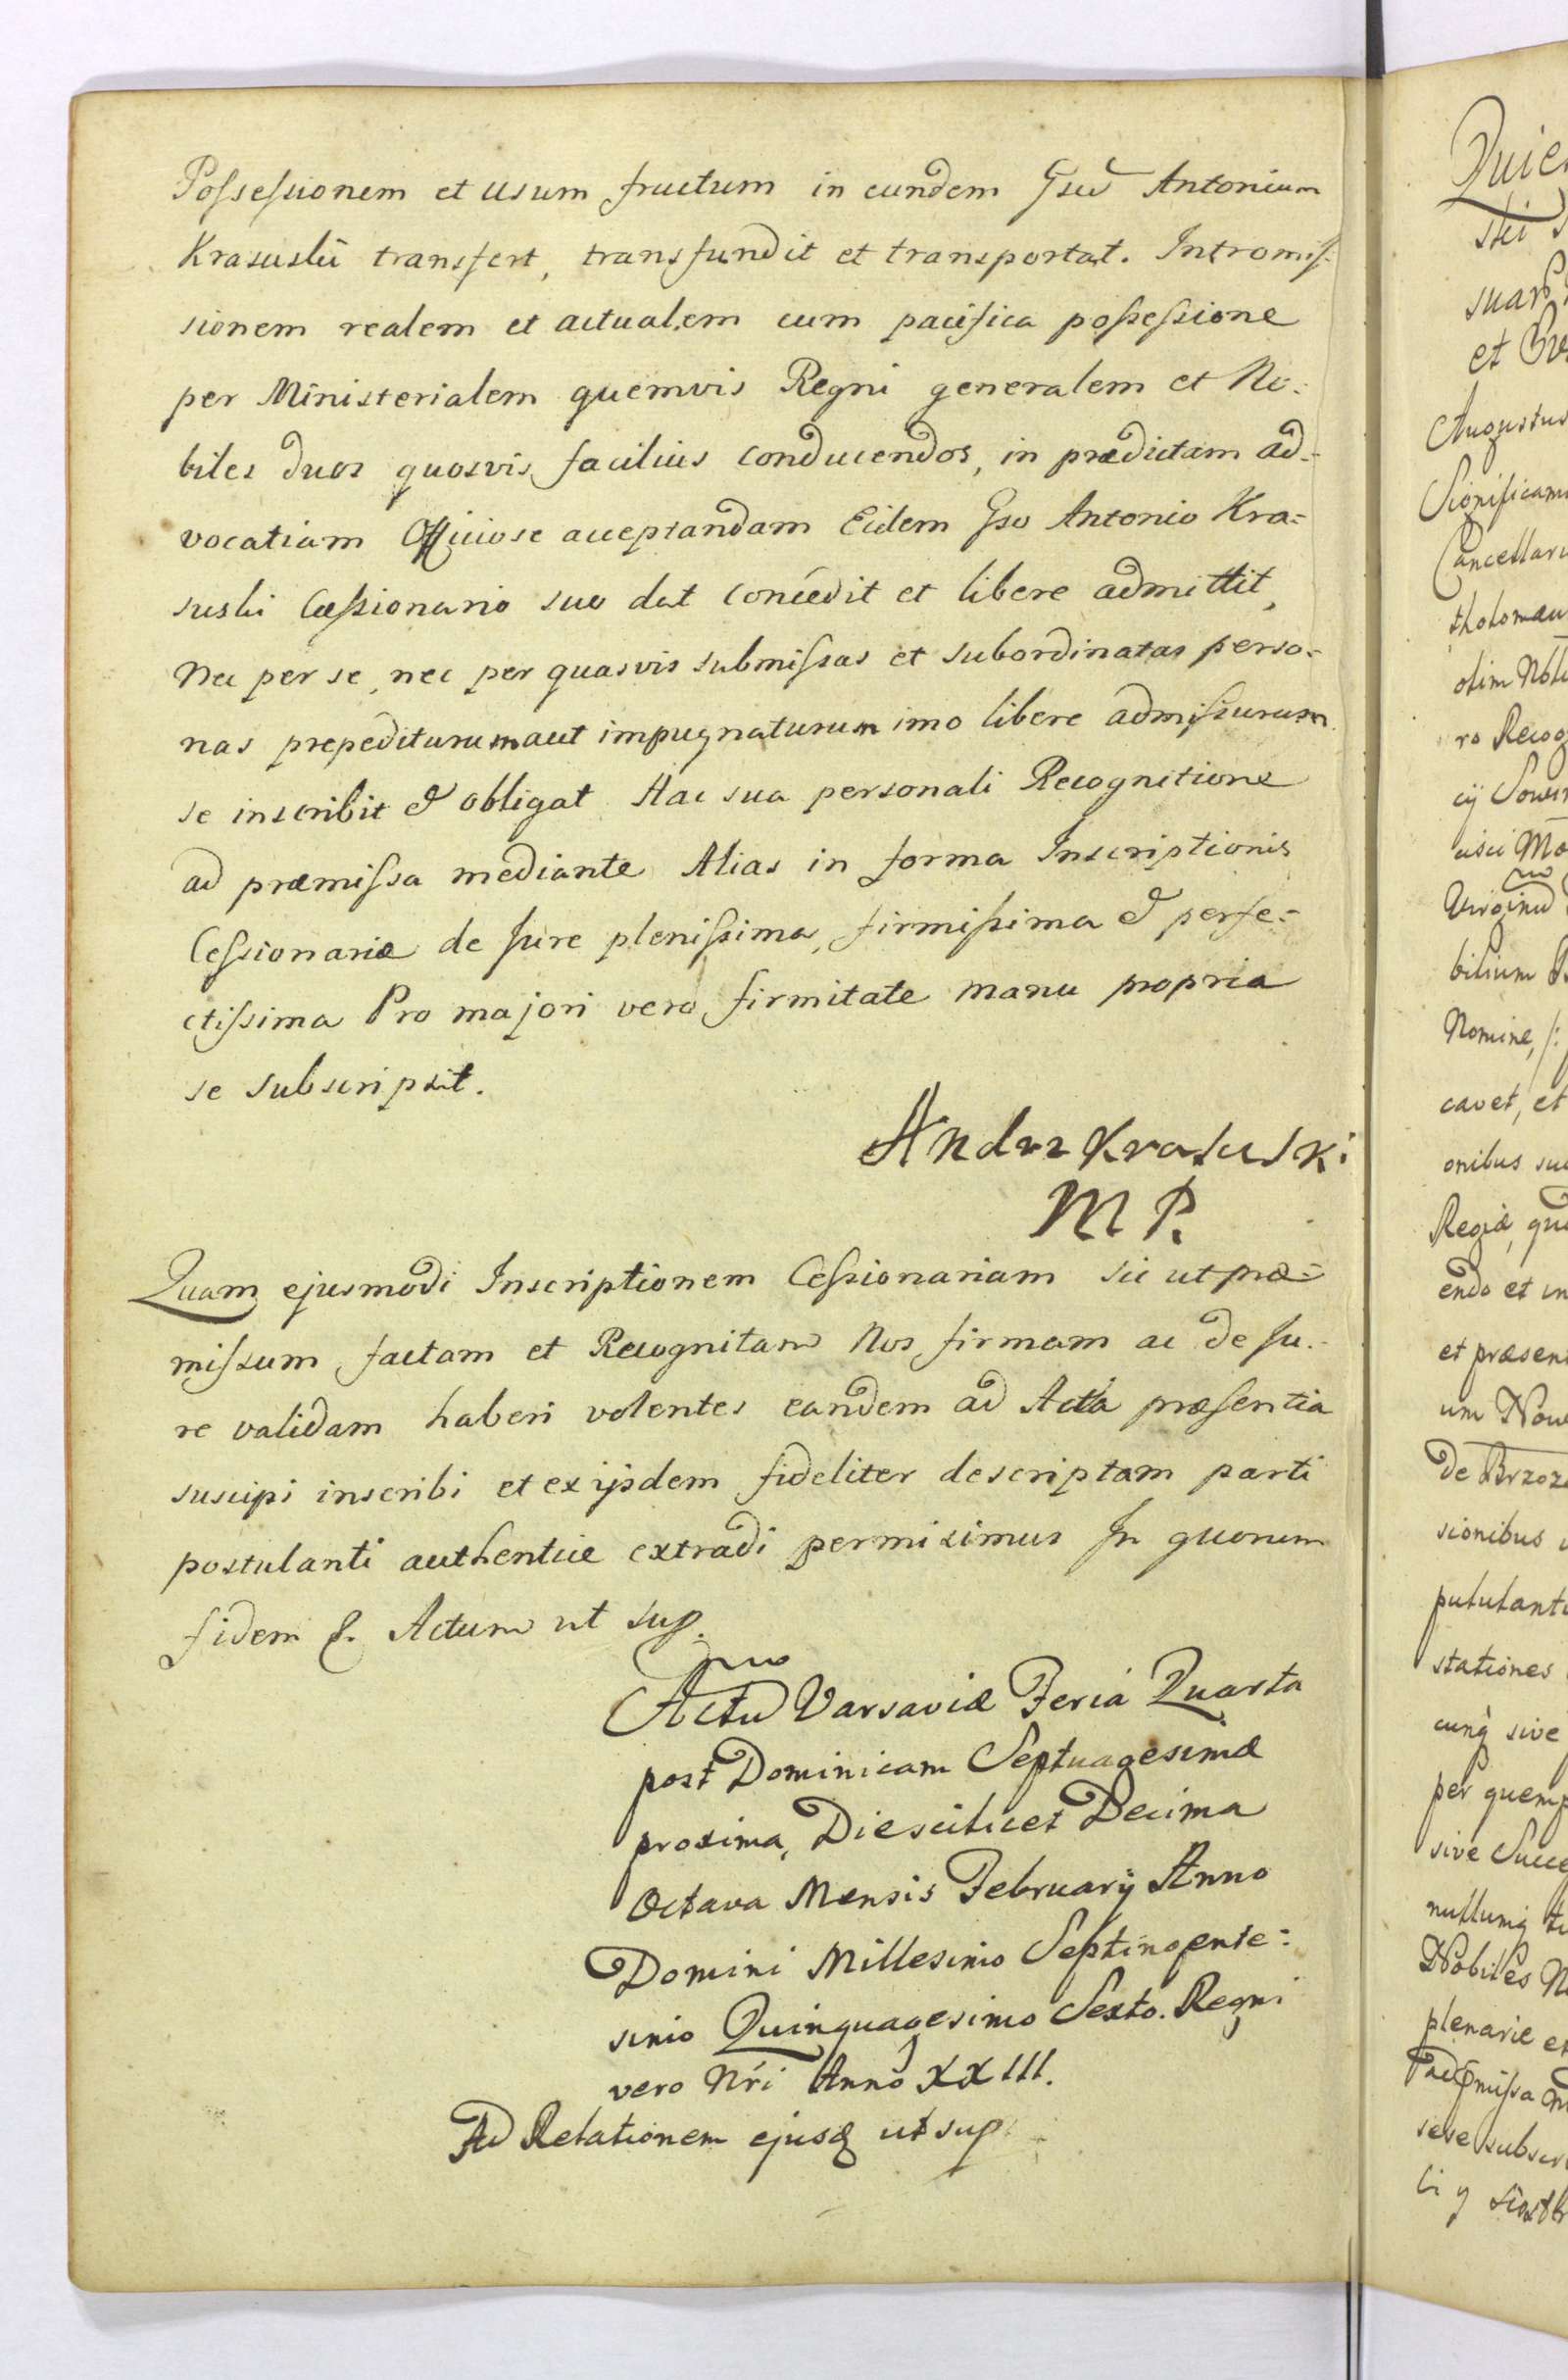 Possessionem et usum fructum in eundem Gsũ Antonium
Krasuski transfert, transfundit et transportat. Intromis-
sionem realem et actualem cum pacifica possessione
per Ministerialem quemvis Regni generalem et No=
biles duos quosvis facilius conducendos, in prædictam ad=
vocatiam Officiose acceptandam Eidem Gso Antonio Kra=
suski Cæssionario suo dat concedit et libere admittit,
nec per se, nec per quasvis submissas et subordinatas perso=
nas prepediturum aut impugnaturum imo libere admissurum
se inscribit & obligat Hac sua personali Recognitione
ad præmissa mediante Alias in forma Inscriptionis
Cessionariæ de Jure plenissima, firmissima & perfe=
ctissima Pro majori vero firmitate manu propria
se subscripsit.
Andrz Krasuski
MP.
Quam ejusmodi Inscriptionem Cessionariam sic ut præ=
missum factam et Recognitam Nos firmam ac de Ju=
re validam haberi volentes eandem ad Acta præsentia
suscipi inscribi et ex ijsdem fideliter descriptam parti
postulanti authentice extradi permisimus In quorum
fidem &. Actum ut sup.
Actu Varsaviæ Feria Quarta
post Dominicam Septuagesimæ
proxima, Die scilicet Decima
Octava Mensis February Anno
Domini Millesimo Septingente=
simo Quinquagesimo Sexto. Regni
vero Nri Anno XXIII.
Ad Relationem ejusq ut sup
Augustus
Cancellari
olim
ro Recog
bilium
Nomine, /:
cavet, et
onibus su
Regiæ, qu
endo et in
et præsen
de Brzoz
sionibus
stationes
cunq sive
per quemp
sive Succe
Nobiles
plenarie et
sese subscr